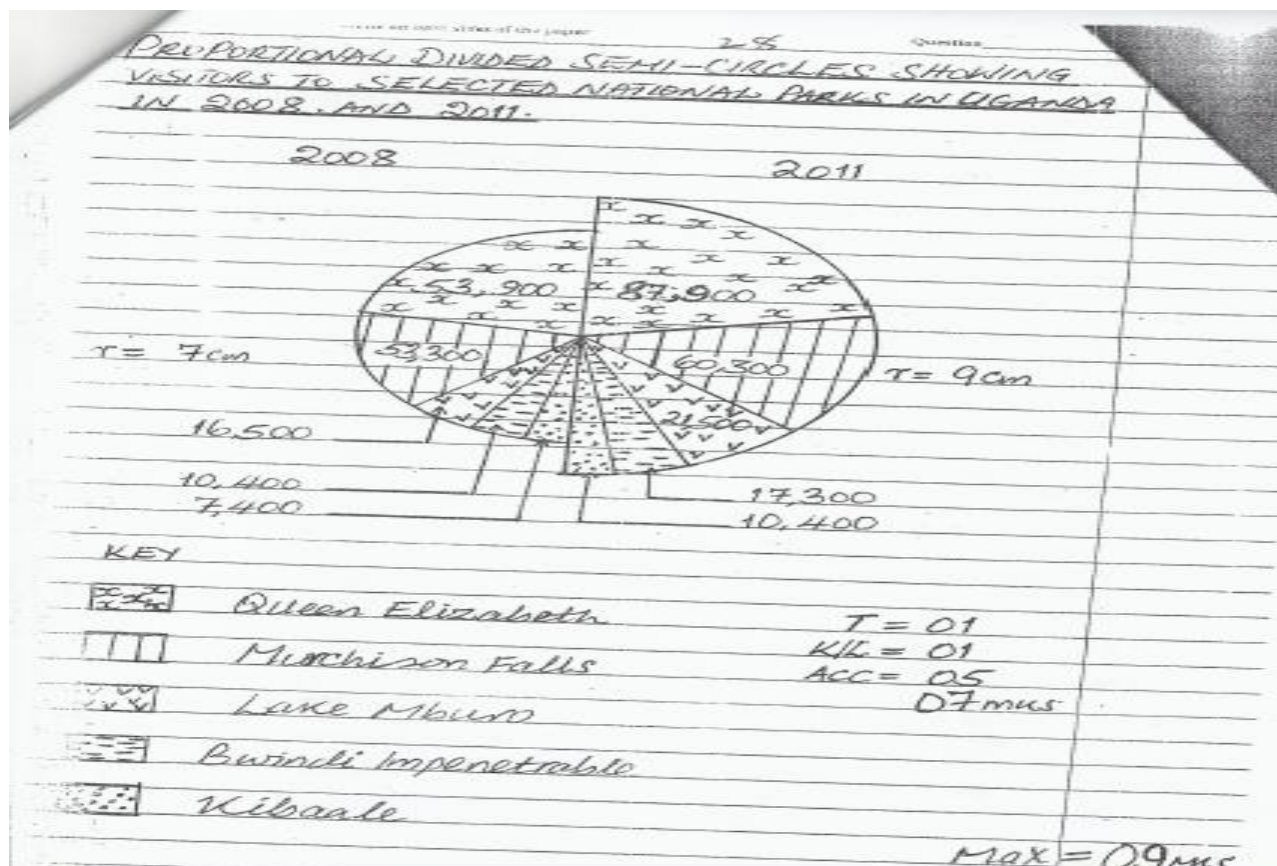 28 Question
PROPORTIONAL DIVIDED SEMI-CIRCLES SHOWING
VISITORS TO SELECTED NATIONAL PARKS IN UGANDA
IN 2008 AND 2011.
2008 2011
53,900 87,900
r = 7cm 53,300 60,300 r = 9cm
21,500
16,500
10,400 17,300
7,400 10,400
KEY
Queen Elizabeth T = 01
Murchison Falls K/L = 01
ACC = 05
Lake Mburo 07mks
Bwindi Impenetrable
Kibaale
Max = 09mks